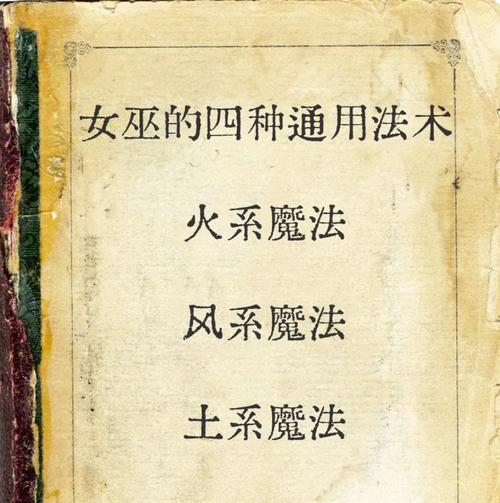 女巫的四种通用法术
火系魔法
风系魔法
土系魔法